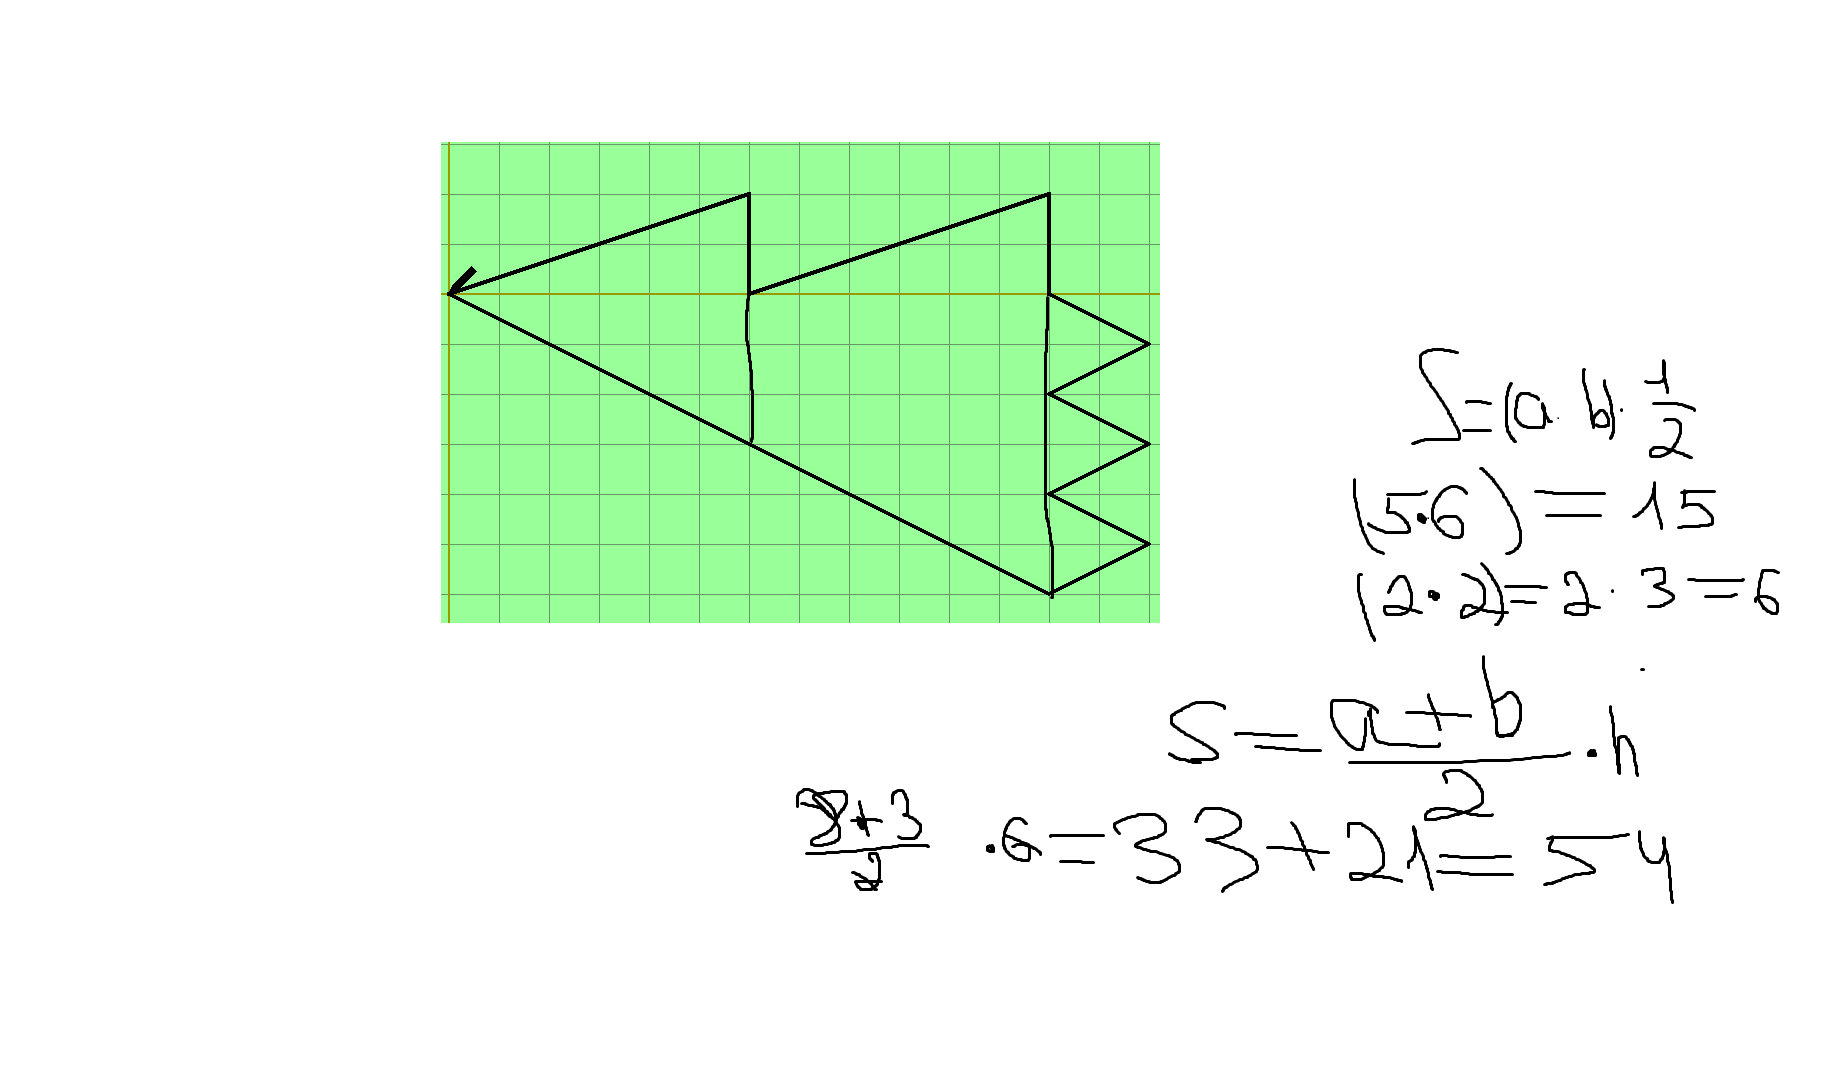 S=(a·b)·1/2
(5·6)=15
(2·2)=2·3=6
S=(a+b)/2·h
(8+3)/2·6=33+21=54